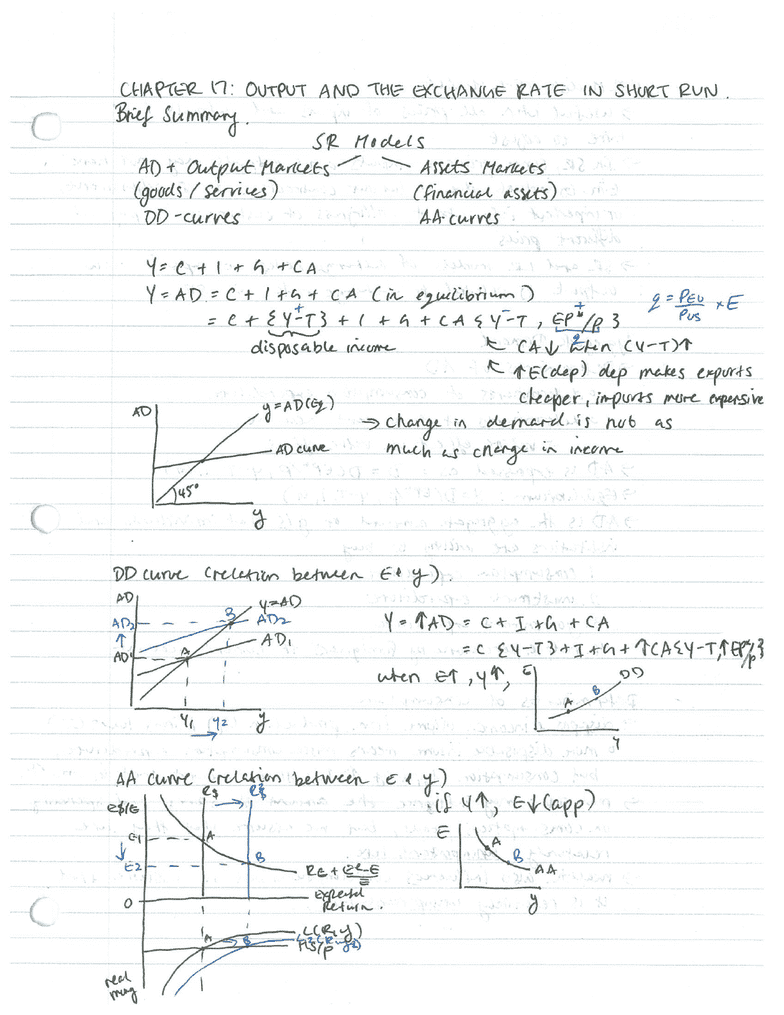 CHAPTER 17: OUTPUT AND THE EXCHANGE RATE IN SHORT RUN.
Brief Summary.
SR Models
AD + Output Markets
(goods / services)
DD-curves
Assets Markets
(financial assets)
AA-curves
Y = C + I + G + CA
Y = AD = C + I + G + CA (in equilibrium)
= C + {Y-T} + I + G + CA {Y-T, EP*/P}
+ - +
disposable income
q
q = PEU/PUS × E
CA↓ when (Y-T)↑
↑E(dep) dep makes exports
cheaper, imports more expensive
→ change in demand is not as
much as change in income
AD
y=AD(Eq)
AD curve
45°
y
DD curve (relation between E & y)
AD
AD2
↑
AD1
B
A
Y=AD
AD2
AD1
Y1
Y2
→
y
Y = ↑AD = C + I + G + CA
= C {Y-T} + I + G + ↑CA {Y-T, ↑EP*/P}
when E↑, Y↑,
E
A
B
DD
Y
AA curve (relation between E & y)
R$ → R$
E$/E
E1
↓
E2
0
A
B
RE + Ee-E/E
Expected
Return.
A → B
L(R, y)
L2(R, y2)
MS/P
real
if Y↑, E↓(app)
E
A
B
AA
y